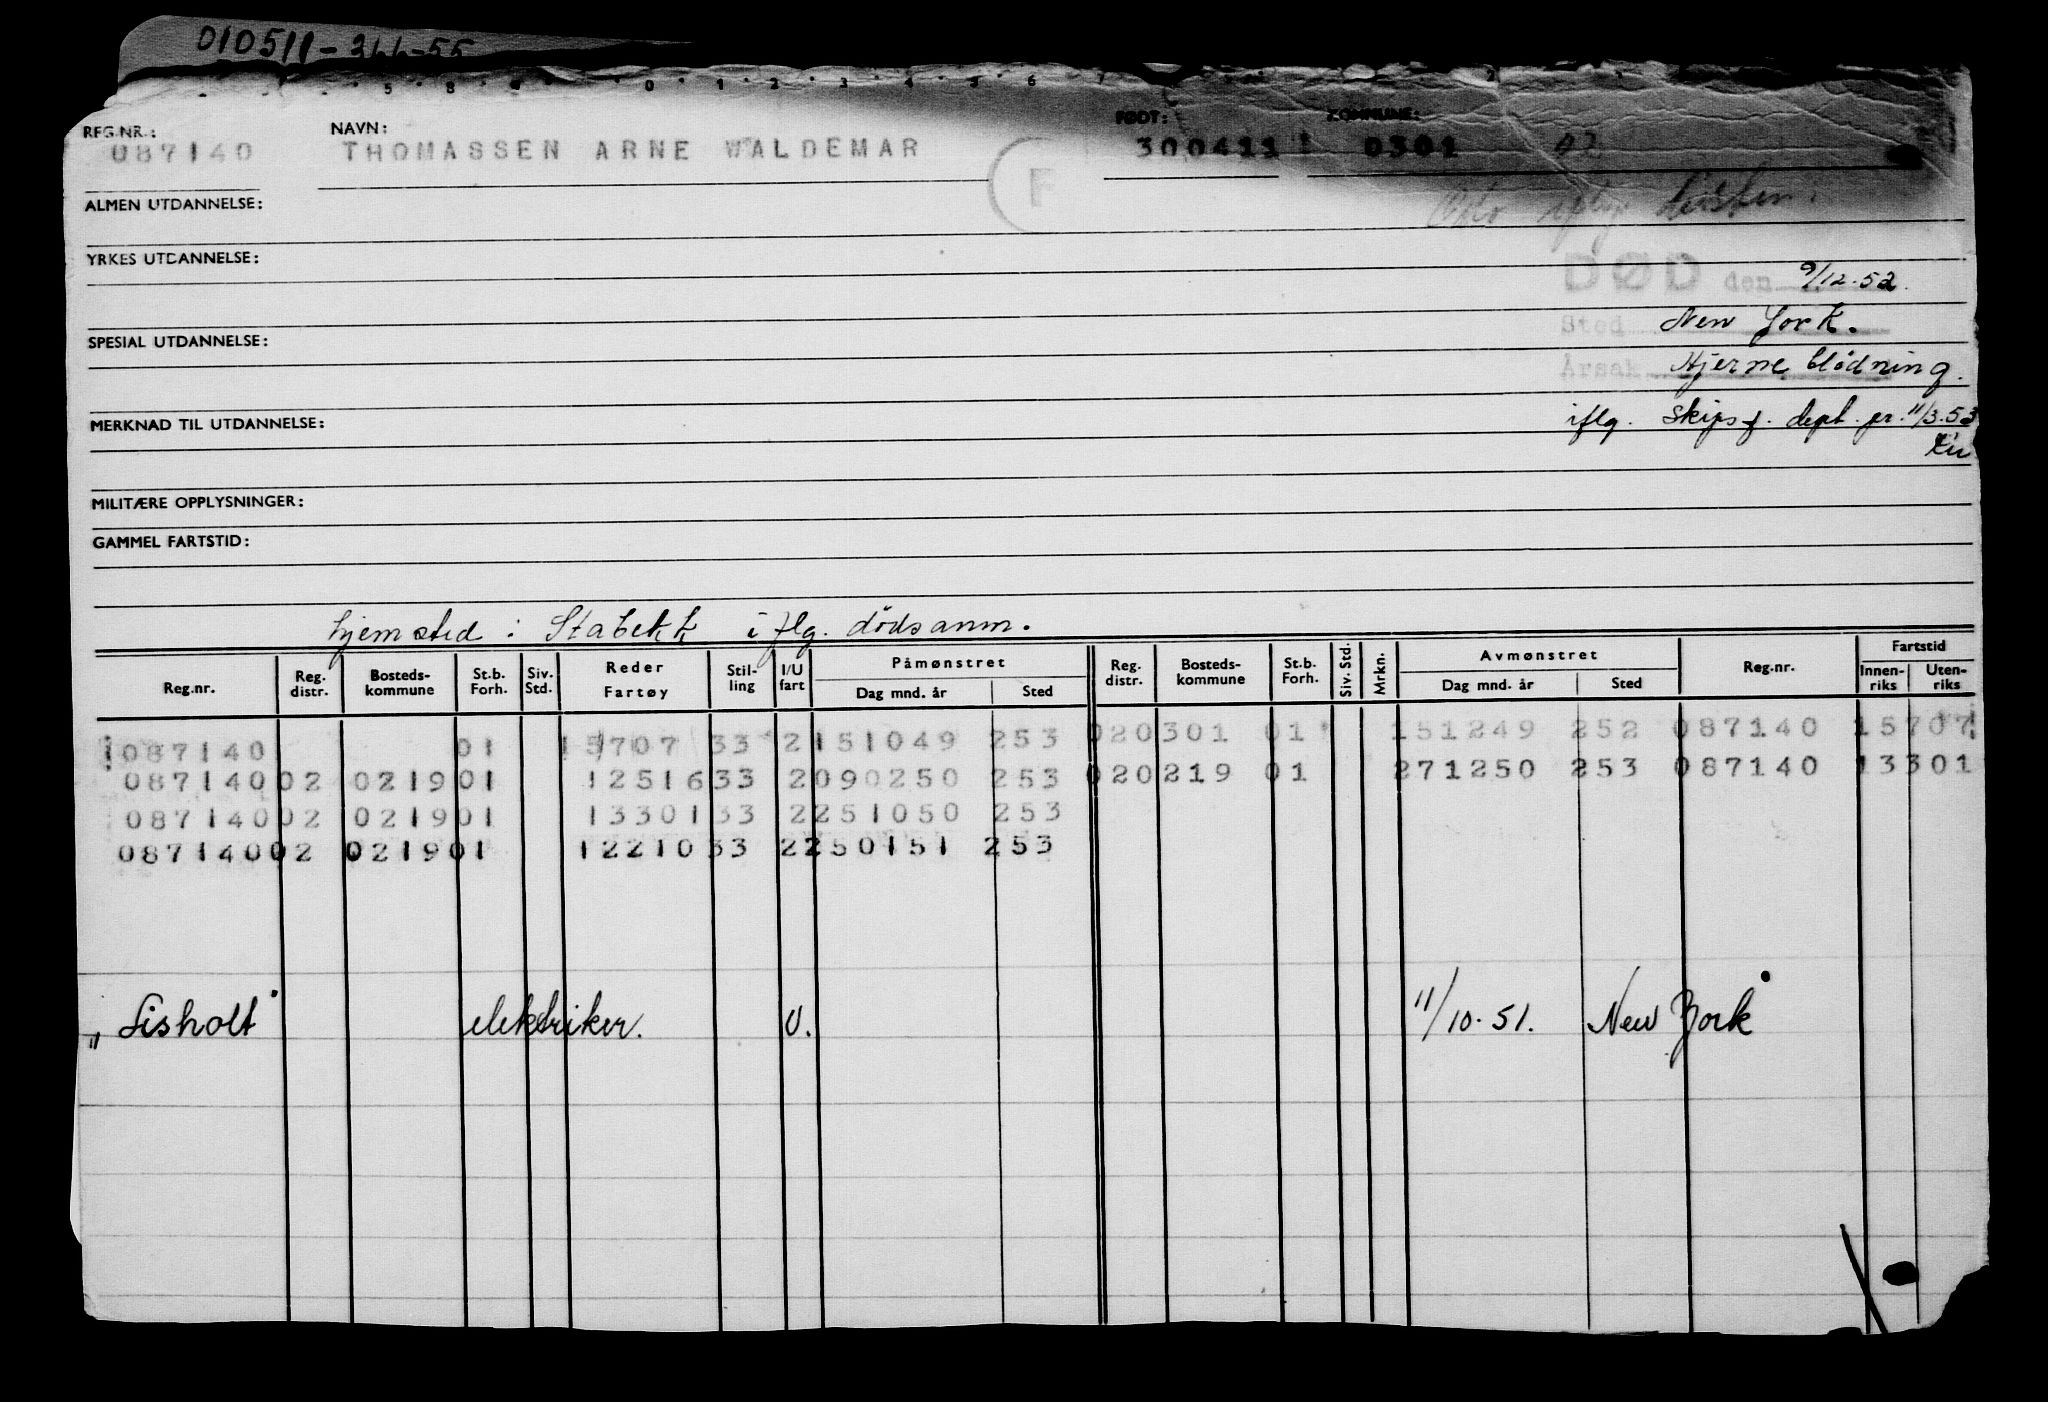 010511-366-55
REG.NR.: NAVN: FØDT: KOMMUNE:
087140 THOMASSEN ARNE WALDEMAR F 300411 1 0301 02
ALMEN UTDANNELSE: Oslo
YRKES UTDANNELSE:
DØD den 9/12.52.
Sted New York.
SPESIAL UTDANNELSE:
Årsak Hjerneblødning.
MERKNAD TIL UTDANNELSE: iflg. Skipsf. dept. pr. 11/3.53
MILITÆRE OPPLYSNINGER:
GAMMEL FARTSTID:
hjemsted: Stabekk iflg. dødsanm.
Reg.nr. Reg. distr. Bosteds-kommune St.b. Forh. Siv. Std. Reder Fartøy Stil-ling I/U fart Påmønstret Dag mnd. år Sted Reg. distr. Bosteds-kommune St.b. Forh. Siv. Std. Mrkn. Avmønstret Dag mnd. år Sted Reg.nr. Fartstid Innen-riks Uten-riks
087140 01 15707 33 2 151049 253 020301 01 151249 252 087140 15707
087140 02 0219 01 12516 33 2 090250 253 020219 01 271250 253 087140 13301
087140 02 0219 01 13301 33 2 251050 253
087140 02 0219 01 12210 33 2 250151 253
"Lisholt" elektriker. U. 11/10.51. New York